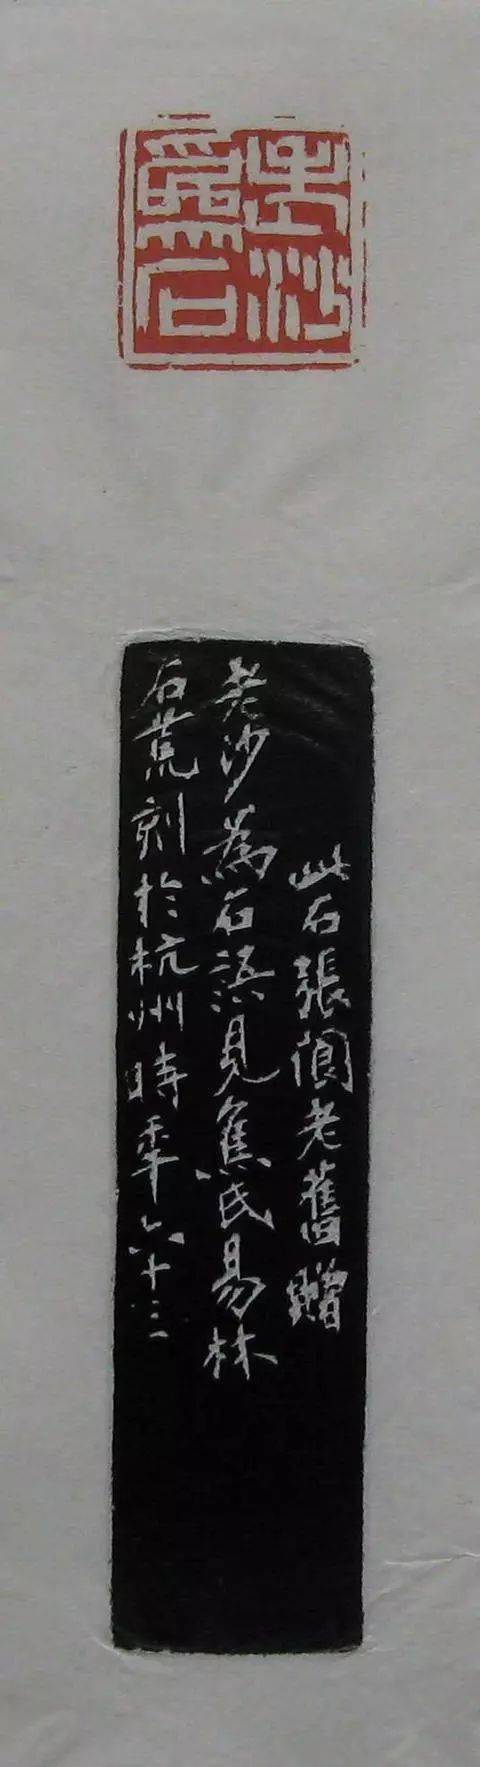 老沙
為石
此石張閬老舊贈
老沙為石語見焦氏易林
石荒刻於杭州時秊六十三